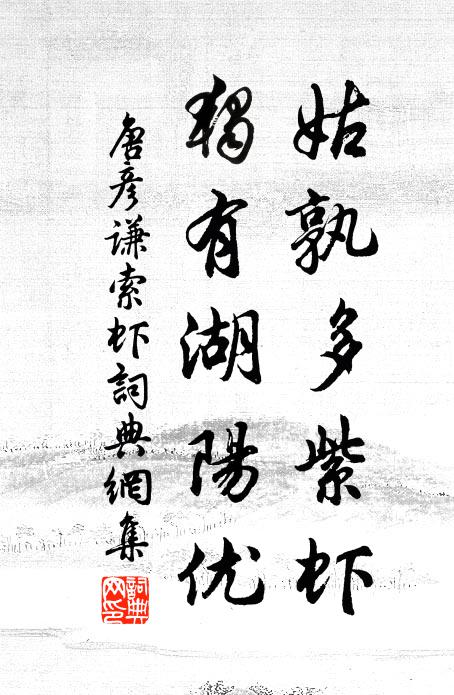 姑孰多紫虾
独有湖陽优
唐彦谦索虾詞典網集
詞典网印